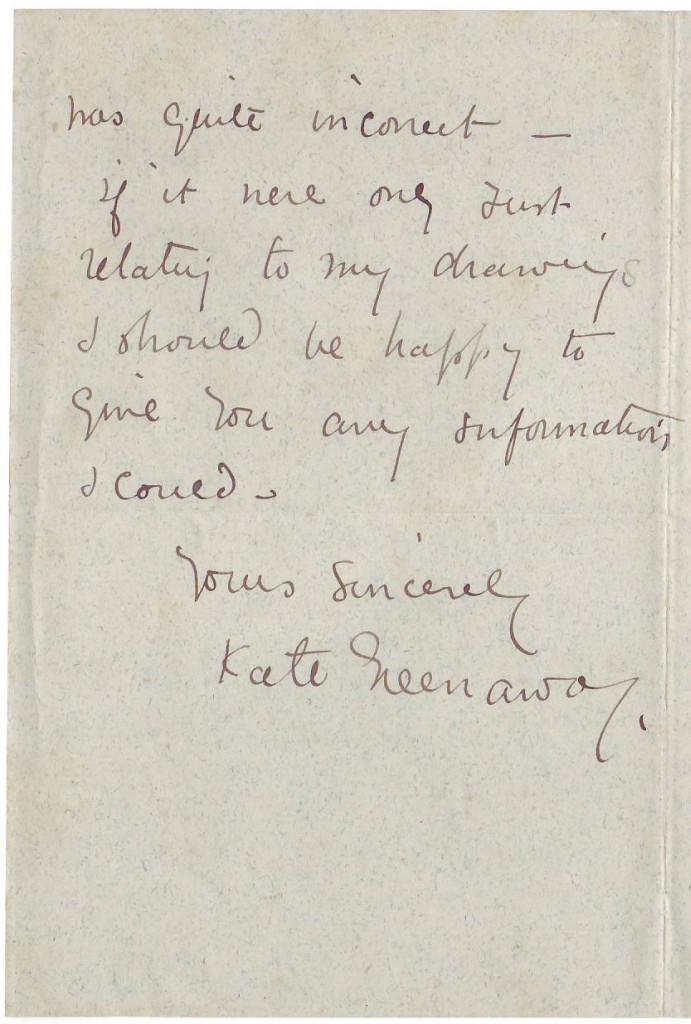 was quite incorrect –
if it were only just
relating to my drawings
I should be happy to
give you any information
I could –
Yours Sincerely
Kate Greenaway.